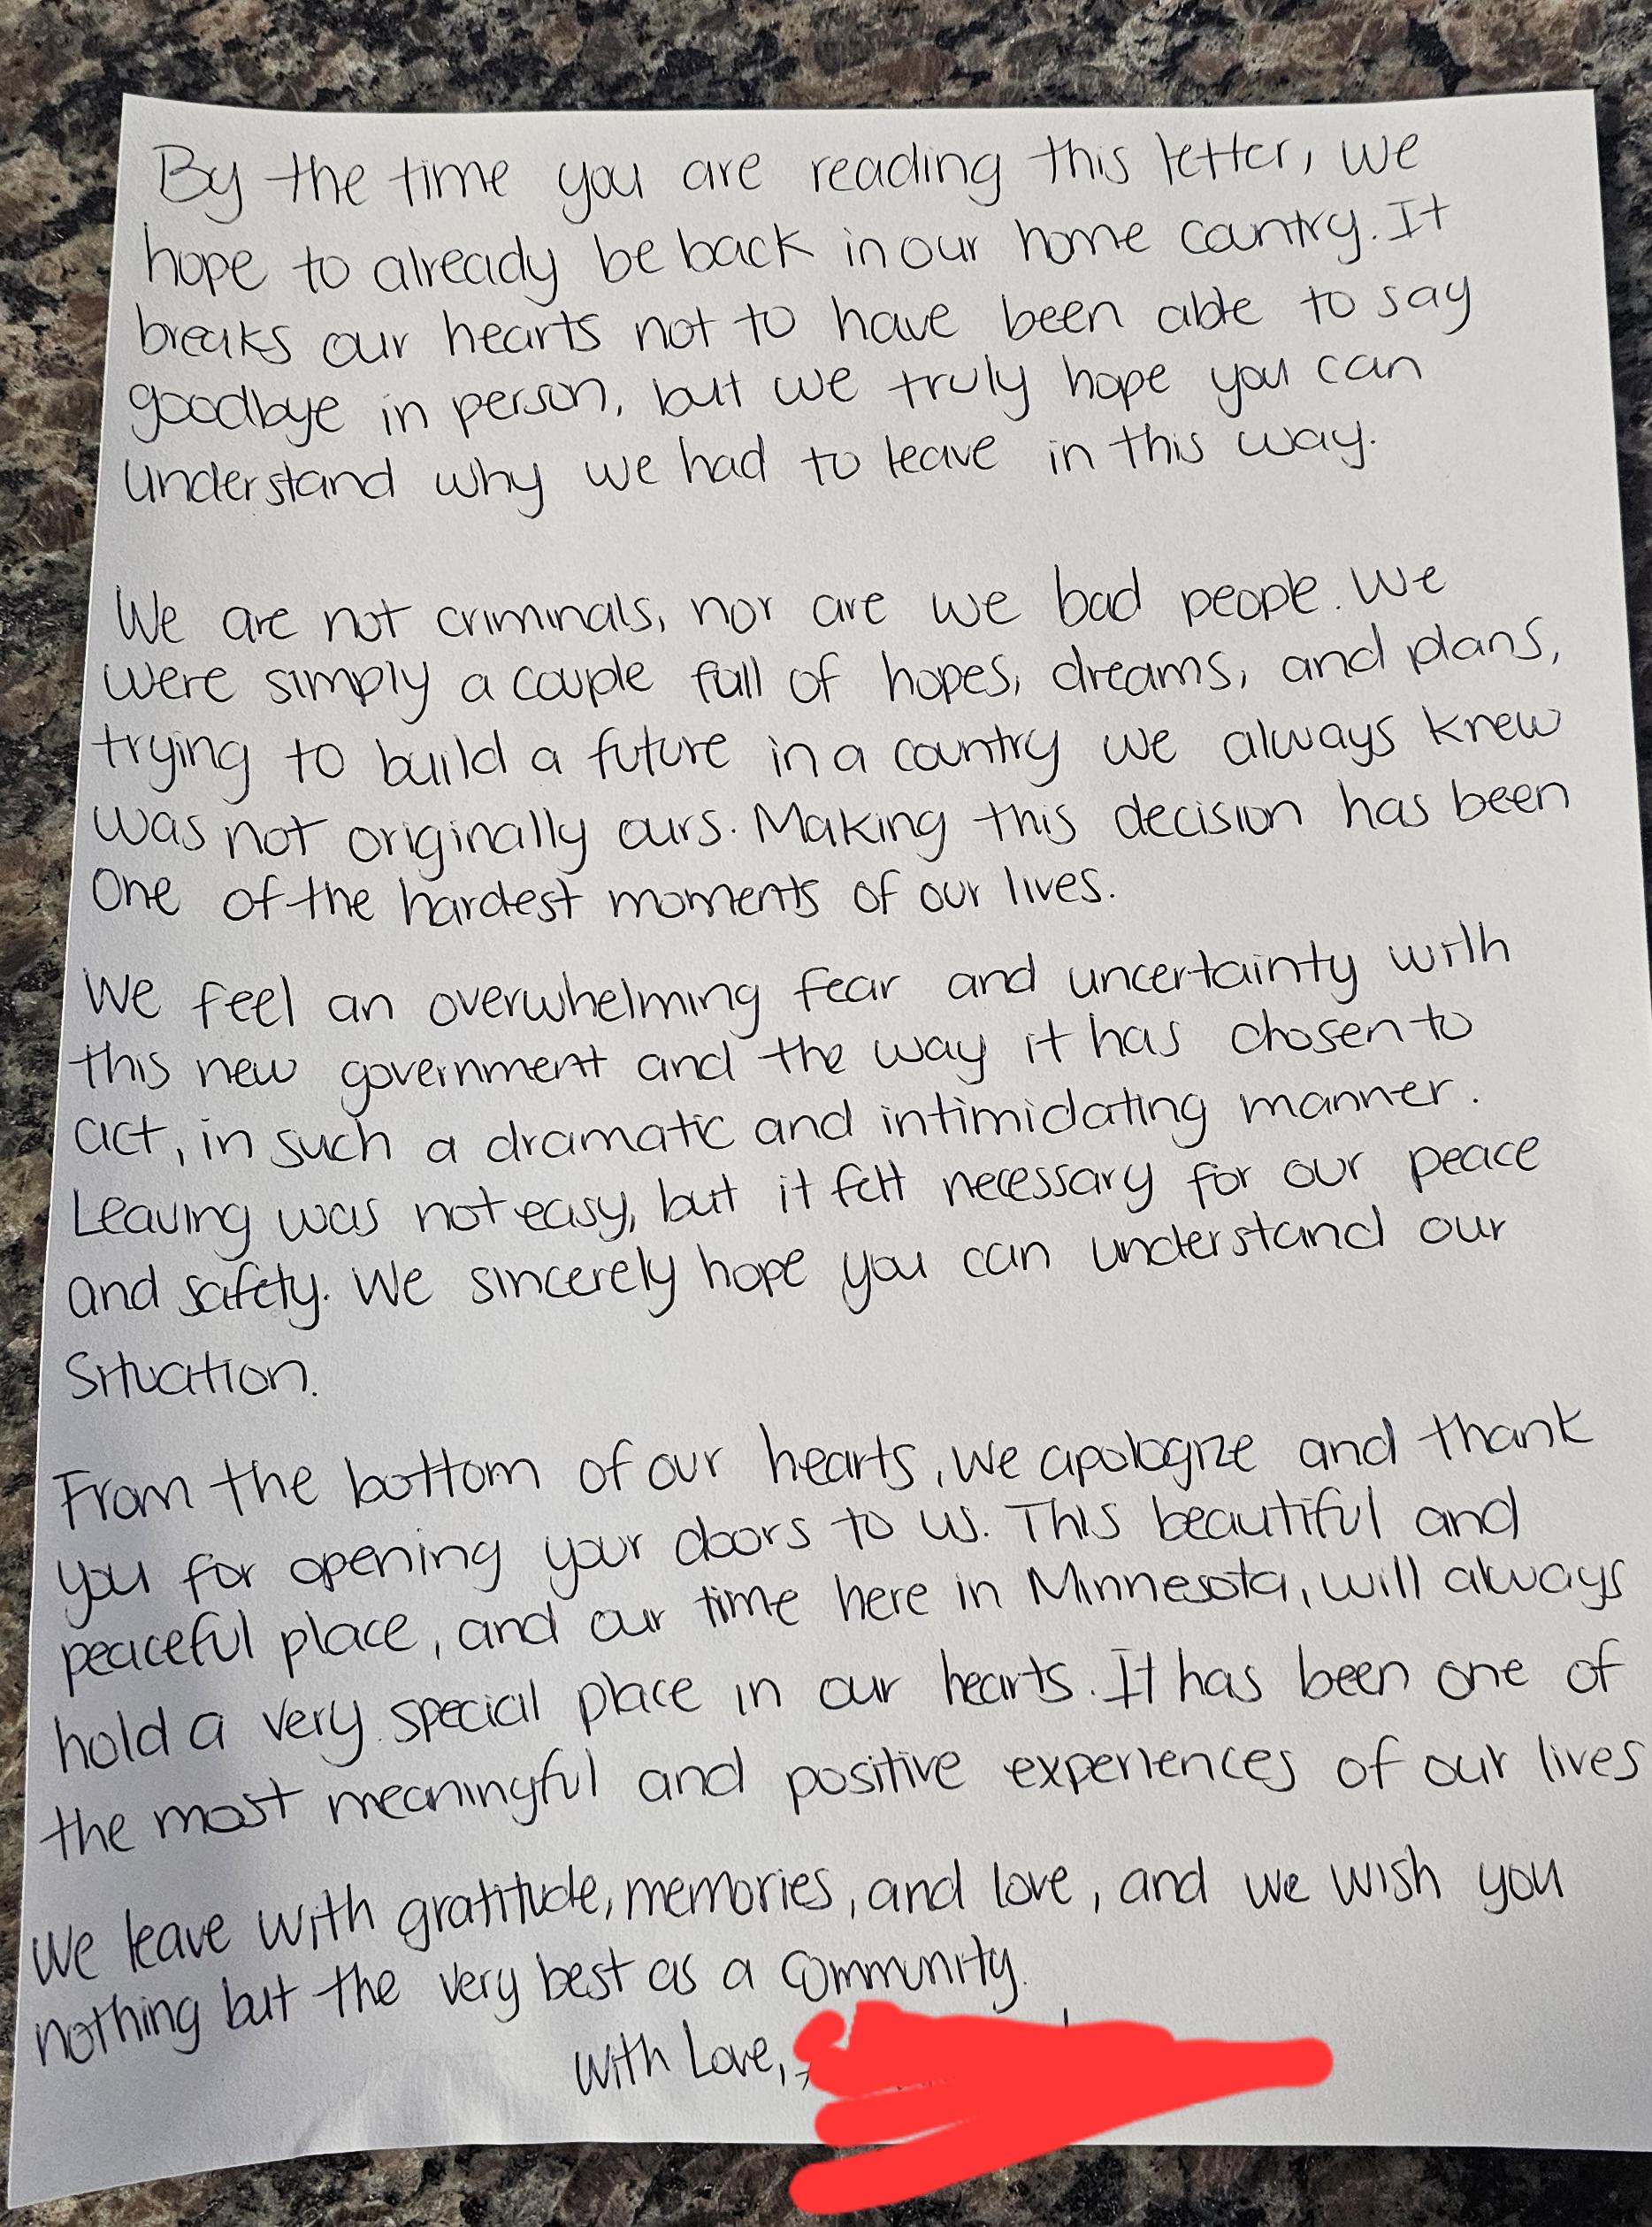 By the time you are reading this letter, we
hope to already be back in our home country. It
breaks our hearts not to have been able to say
goodbye in person, but we truly hope you can
understand why we had to leave in this way.
We are not criminals, nor are we bad people. We
were simply a couple full of hopes, dreams, and plans,
trying to build a future in a country we always knew
was not originally ours. Making this decision has been
one of the hardest moments of our lives.
We feel an overwhelming fear and uncertainty with
this new government and the way it has chosen to
act, in such a dramatic and intimidating manner.
Leaving was not easy, but it felt necessary for our peace
and safety. We sincerely hope you can understand our
situation.
From the bottom of our hearts, we apologize and thank
you for opening your doors to us. This beautiful and
peaceful place, and our time here in Minnesota, will always
hold a very special place in our hearts. It has been one of
the most meaningful and positive experiences of our lives
We leave with gratitude, memories, and love, and we wish you
nothing but the very best as a community.
with Love,